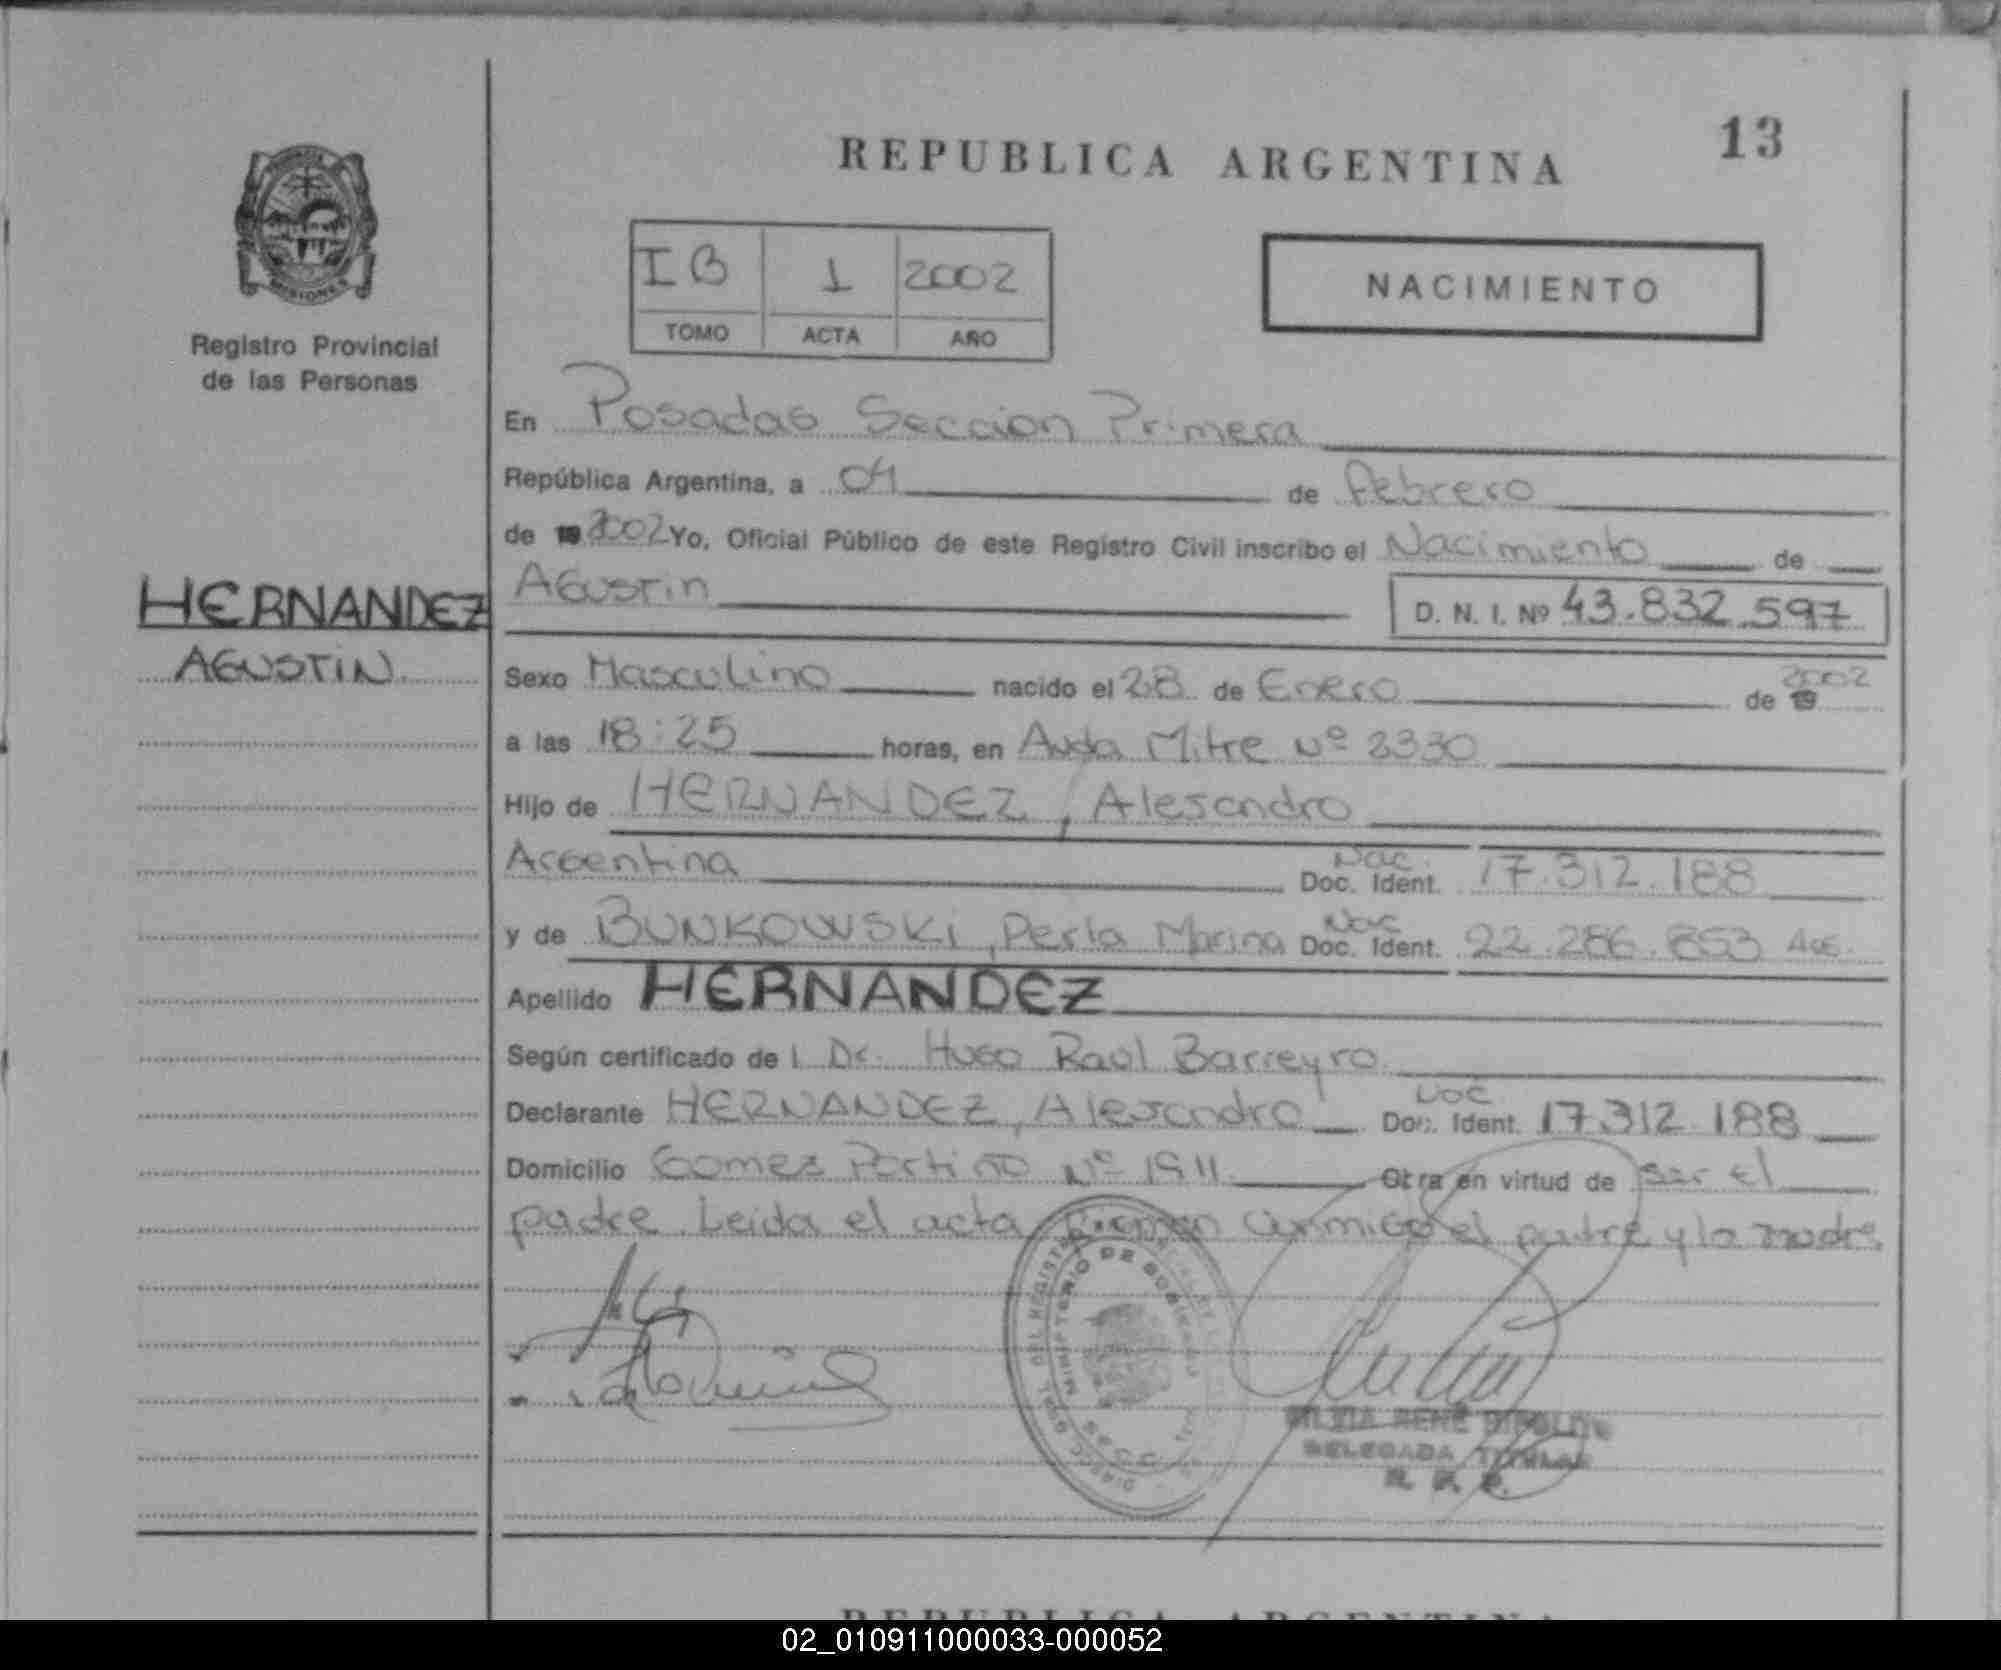 REPUBLICA ARGENTINA
13
MISIONES
Registro Provincial
de las Personas
IB 1 2002
TOMO ACTA AÑO
NACIMIENTO
En Posadas Seccion Primera
República Argentina, a 04 de Febrero
de 19 2002 Yo, Oficial Público de este Registro Civil inscribo el Nacimiento de
HERNANDEZ
AGUSTIN
Agustin D. N. I. Nº 43.832.597
Sexo Masculino nacido el 28 de Enero de 19 2002
a las 18:25 horas, en Avda Mitre Nº 2330
Hijo de HERNANDEZ, Alejandro
Argentina Nac. Doc. Ident. 17.312.188
y de BUNKOWSKI, Perla Marina Nac Doc. Ident. 22.286.853 Arg.
Apellido HERNANDEZ
Según certificado de l Dr. Hugo Raul Barreyro
Declarante HERNANDEZ, Alejandro Doc. Ident. 17.312.188
Domicilio Gomez Portiño Nº 1911 Otra en virtud de ser el
padre. Leida el acta Firman conmigo el padre y la madre
MINISTERIO DE GOBIERNO
DELEGADA TITULAR
R. P. P.
REPUBLICA ARGENTINA
02_010911000033-000052